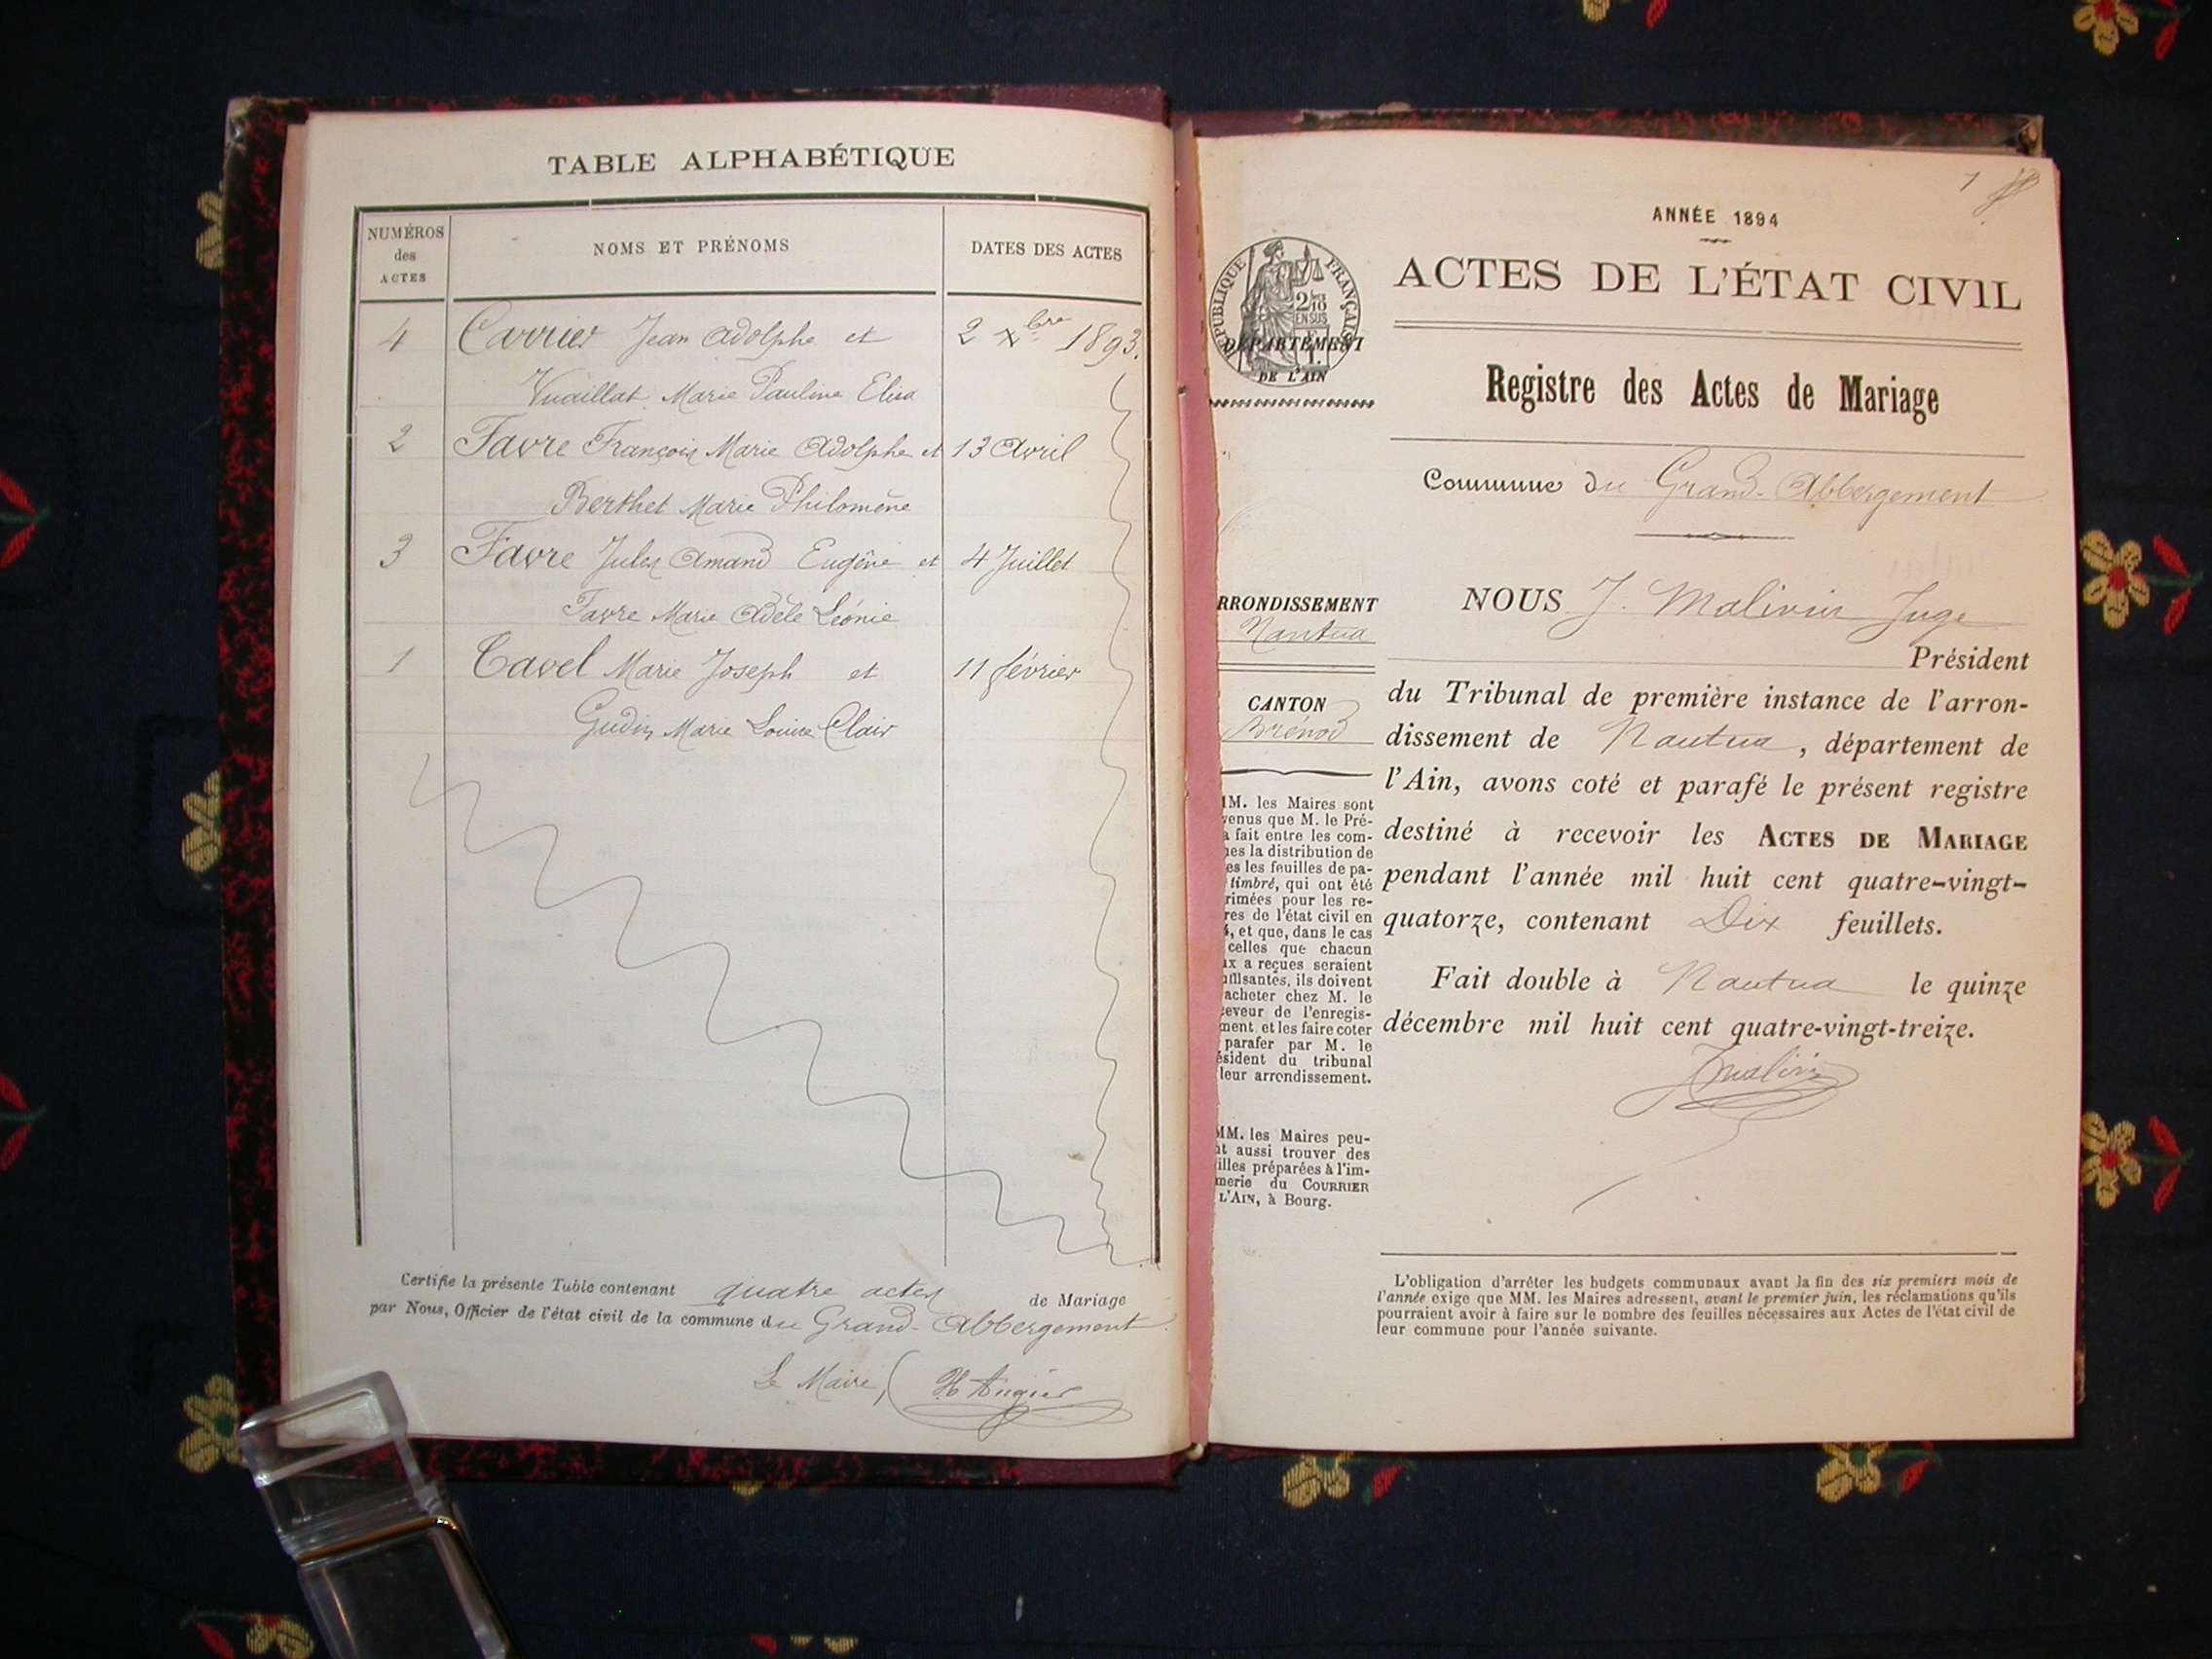 TABLE ALPHABÉTIQUE
NUMÉROS des ACTES
NOMS ET PRÉNOMS
DATES DES ACTES
4 Carrier Jean Adolphe et 2 Xbre 1893.
Vuaillat Marie Pauline Elisa
2 Favre François Marie Adolphe et 13 Avril
Berthet Marie Philomène
3 Favre Jules Amand Eugène et 4 Juillet
Favre Marie Adèle Léonie
1 Tavel Marie Joseph et 11 février
Gudin Marie Louise Clair
Certifie la présente Table contenant quatre actes de Mariage
par Nous, Officier de l'état civil de la commune du Grand-Abbergement
Le Maire, H Augier
1
ANNÉE 1894
RÉPUBLIQUE FRANÇAISE
2
DÉPARTEMENT
DE L'AIN
ACTES DE L'ÉTAT CIVIL
Registre des Actes de Mariage
Commune du Grand-Abbergement
RRONDISSEMENT
Nantua
CANTON
Brénod
IM. les Maires sont
venus que M. le Pré-
a fait entre les com-
nes la distribution de
es les feuilles de pa-
timbré, qui ont été
rimées pour les re-
res de l'état civil en
4, et que, dans le cas
celles que chacun
ux a reçues seraient
uffisantes, ils doivent
acheter chez M. le
ceveur de l'enregis-
ment et les faire coter
parafer par M. le
ésident du tribunal
leur arrondissement.
MM. les Maires peu-
nt aussi trouver des
illes préparées à l'im-
merie du COURRIER
L'AIN, à Bourg.
NOUS J. Malivin Juge
Président
du Tribunal de première instance de l'arron-
dissement de Nantua, département de
l'Ain, avons coté et parafé le présent registre
destiné à recevoir les ACTES DE MARIAGE
pendant l'année mil huit cent quatre-vingt-
quatorze, contenant Dix feuillets.
Fait double à Nantua le quinze
décembre mil huit cent quatre-vingt-treize.
JMalivin
L'obligation d'arrêter les budgets communaux avant la fin des six premiers mois de
l'année exige que MM. les Maires adressent, avant le premier juin, les réclamations qu'ils
pourraient avoir à faire sur le nombre des feuilles nécessaires aux Actes de l'état civil de
leur commune pour l'année suivante.